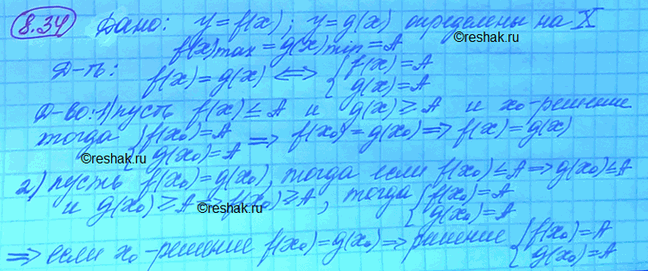 8.34 Дано: y=f(x); y=g(x) определены на X
f(x)max=g(x)min=A
©reshak.ru
Д-ть: f(x)=g(x) ⟺ {f(x)=A
g(x)=A
Д-во: 1) пусть f(x)≤A и g(x)≥A и x₀-решение
тогда {f(x₀)=A
g(x₀)=A ⟹ f(x₀)=g(x₀) ⟹ f(x)=g(x)
©reshak.ru
2) пусть f(x₀)=g(x₀), тогда если f(x₀)≤A ⟹ g(x₀)≤A
и g(x₀)≥A ⟹ f(x₀)≥A, тогда {f(x₀)=A
g(x₀)=A
©reshak.ru
⟹ если x₀-решение f(x₀)=g(x₀) ⟹ решение {f(x₀)=A
g(x₀)=A